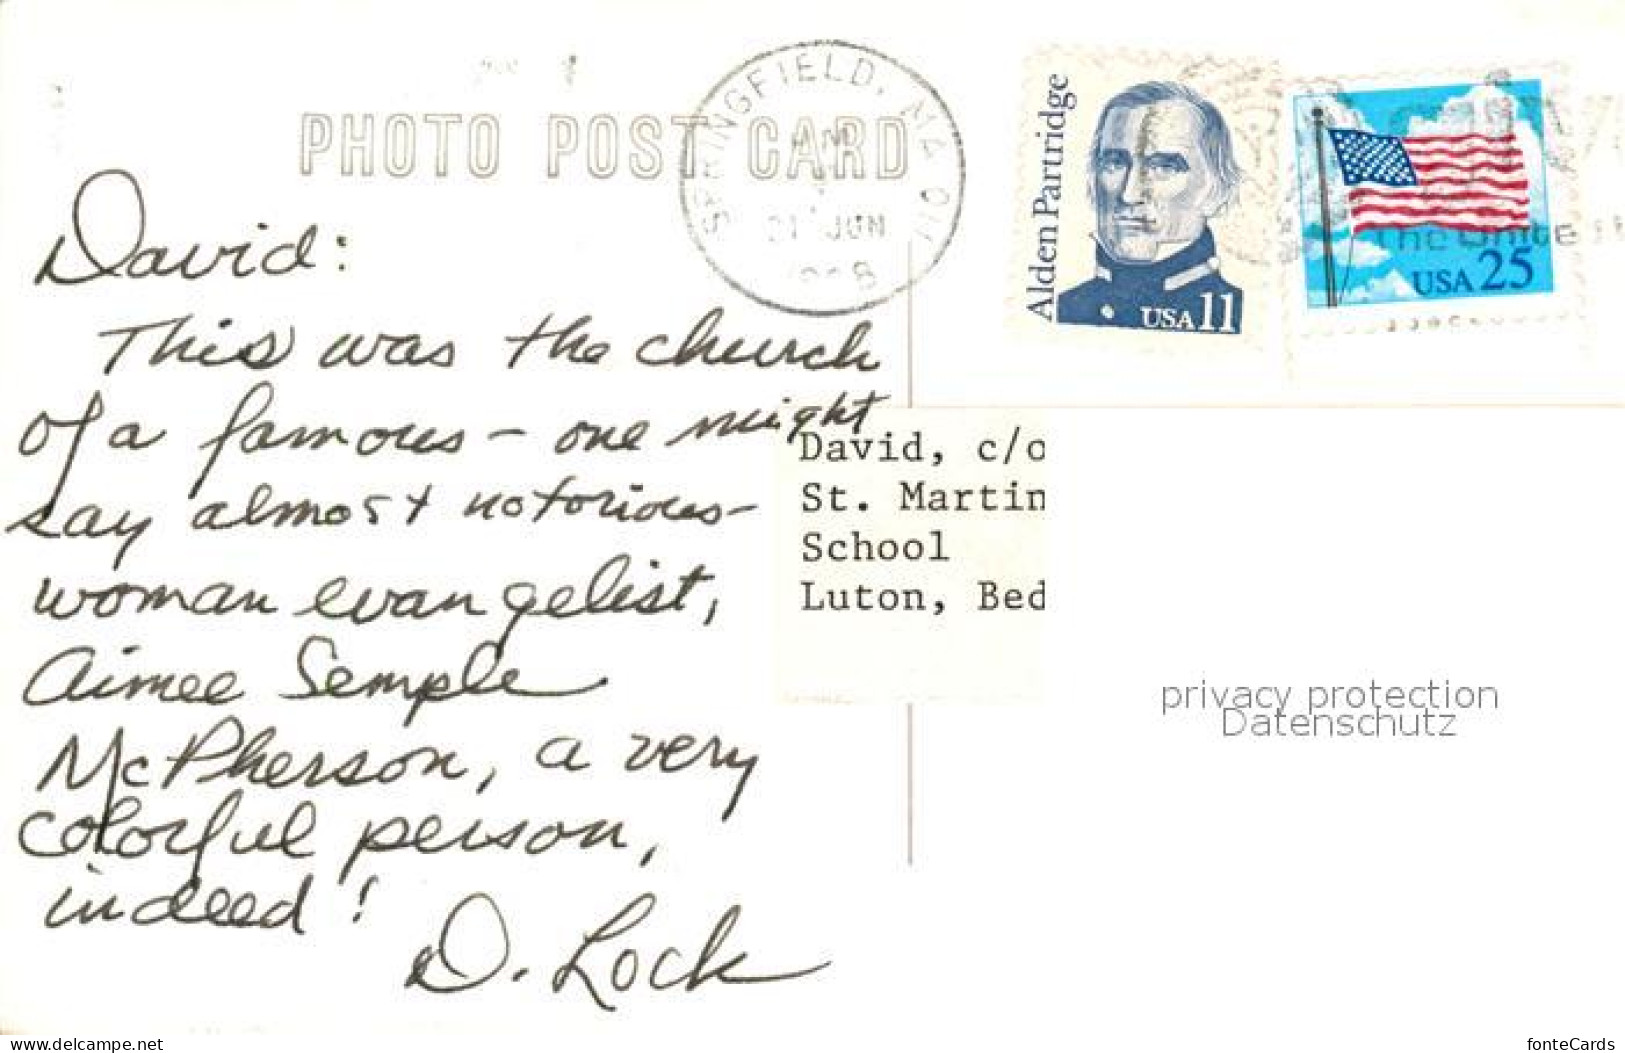 PHOTO POST CARD
SPRINGFIELD, MA 011
21 JUN
Alden Partridge
USA 11
USA 25
David:
This was the church
of a famous – one might
say almost notorious –
woman evangelist,
Aimee Semple
McPherson, a very
colorful person,
indeed!
D. Lock
David, c/o
St. Martin
School
Luton, Bed
privacy protection
Datenschutz
www.delcampe.net
fonteCards